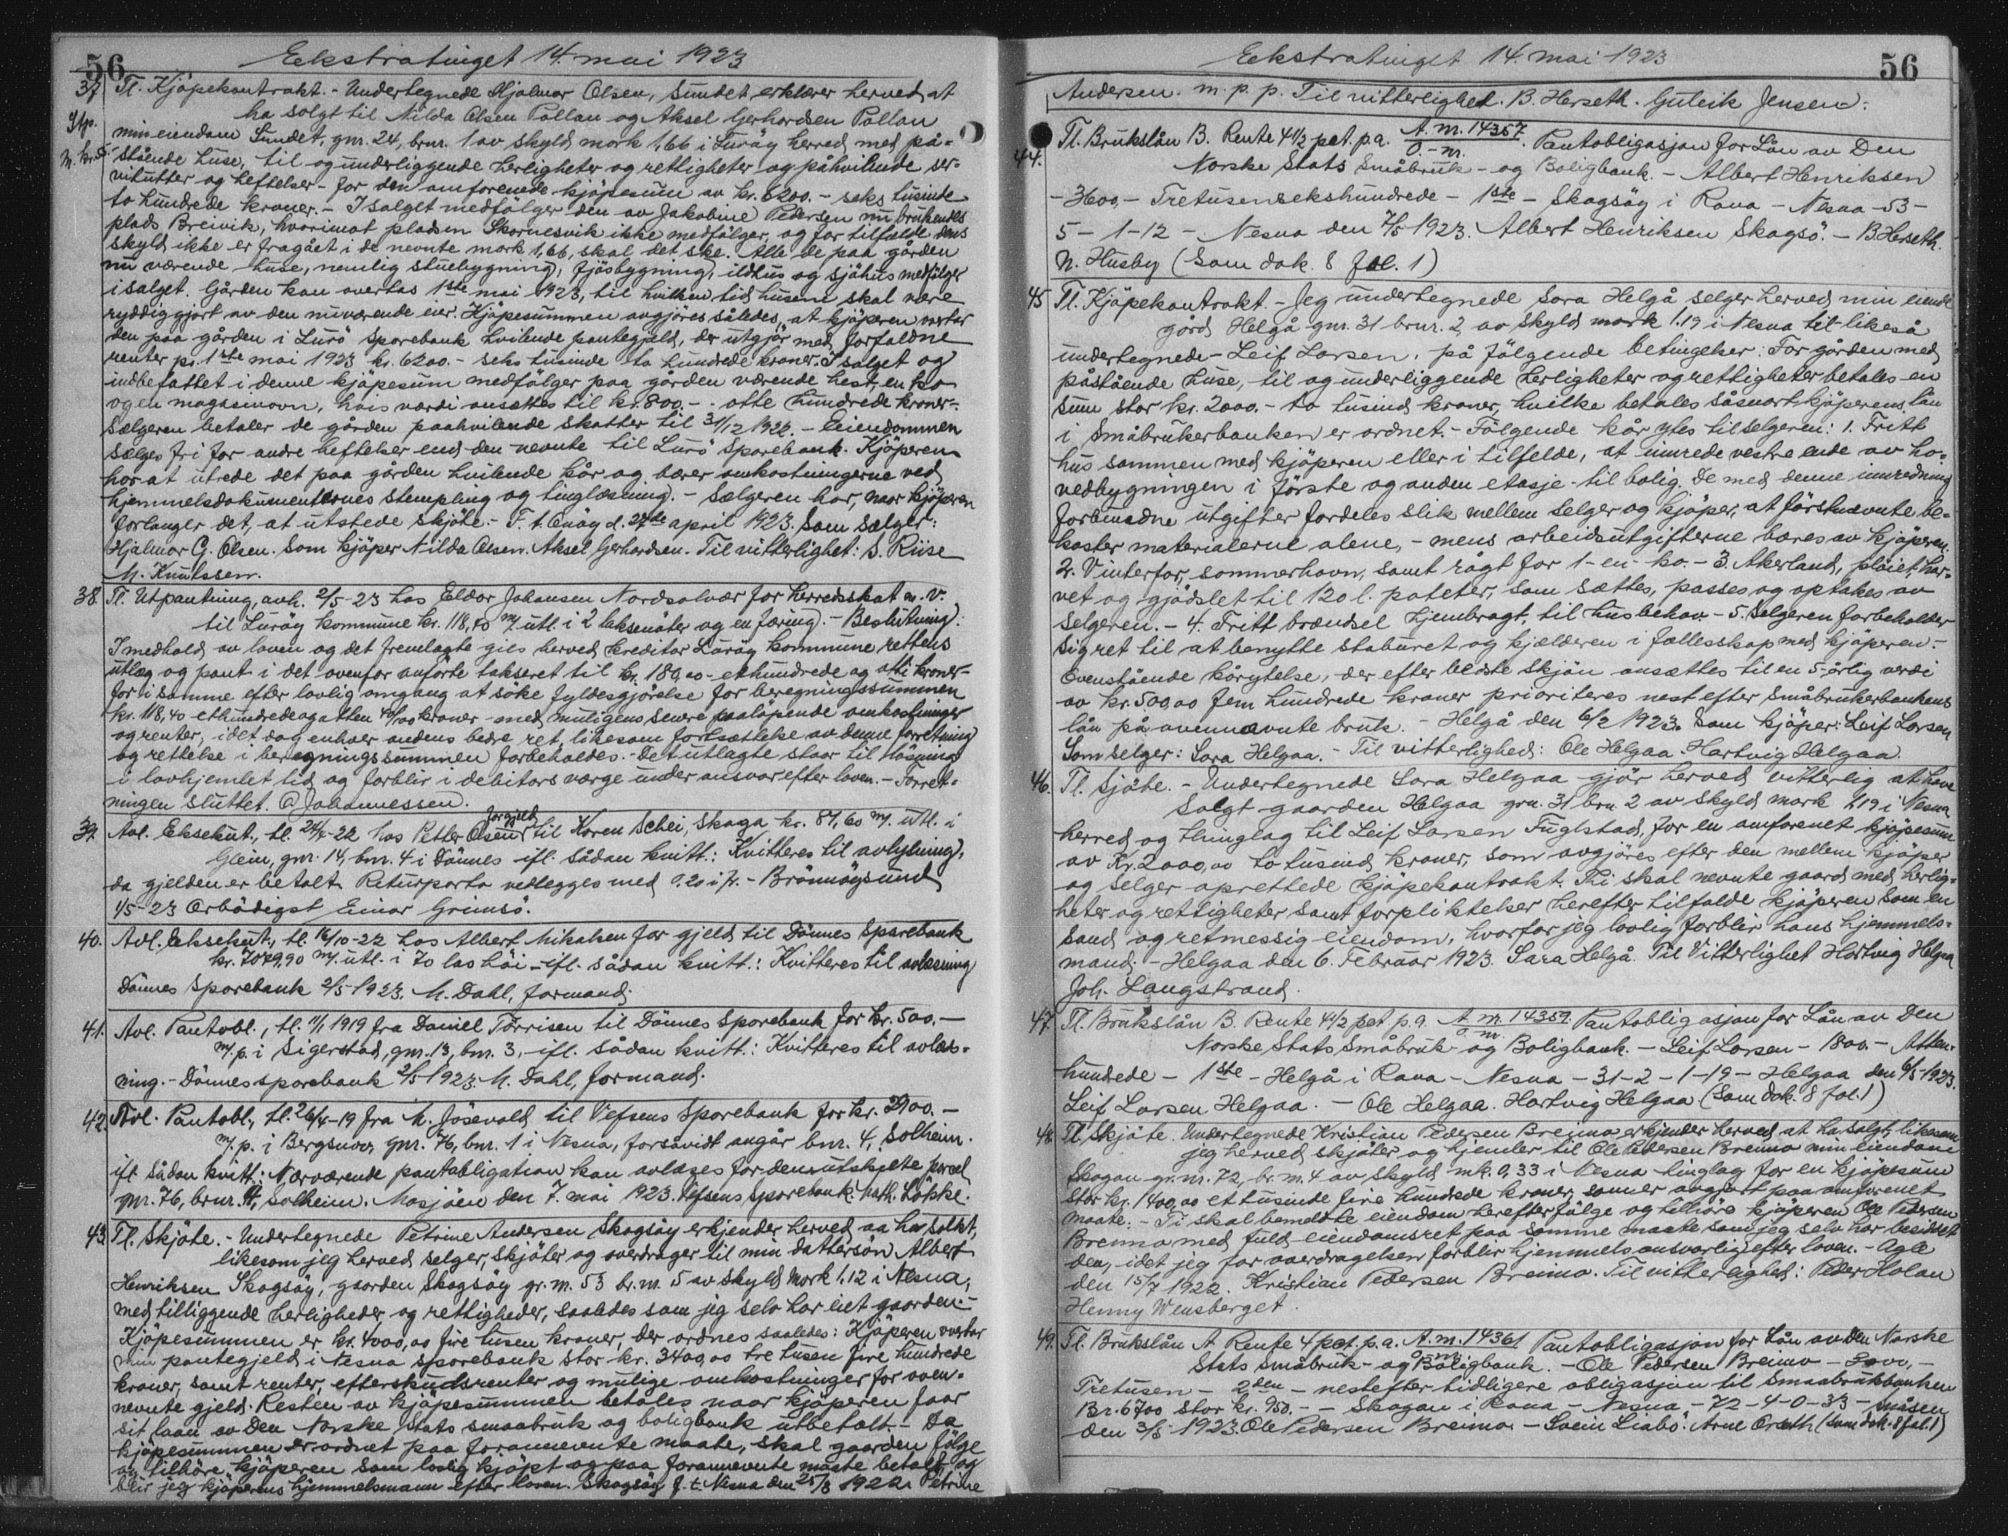 56
Ekstratinget 14. mai 1923
37 Tl. Kjöpekontrakt. - Undertegnede Hjalmar Olsen, Sundet erklærer herved at
ha solgt til Nilda Olsen Pollan og Aksel Gerhardsen Pollan
min eiendom Sundet, gnr. 24, brnr. 1 av skyld mork 1,66 i Luröy herred med på-
stående huse, til og underliggende herligheter og rettigheter og påhvilende ser-
vitutter og heftelser - for den omforenede kjöpesum av kr. 6200. - seks tusinde
to hundrede kroner. - I salget medfölger den av Jakobine Pedersen nu brukendes
plads Breivik, hvorimot pladsen Skornesvik ikke medfölger, og for tilfælde dens
skyld ikke er fragået i de nevnte mork 1,66, skal det ske. Alle de paa gården
nu værende huse, nemlig stuebygning, fjösbygning, ildhus og sjöhus medfölger
i salget. Gården kan overtas 1ste mai 1923, til hvilken tid husene skal være
ryddiggjort av den nuværende eier. Kjöpesummen avgjöres således, at kjöperen overtar
den paa gården i Lurö Sparebank hvilende pantegjeld, der utgjör med forfaldne
renter pr. 1ste mai 1923 kr. 6200. - seks tusinde to hundrede kroner. I salget og
indbefattet i denne kjöpesum medfölger paa gården værende hest, en ko
og en magasinovn, hvis værdi ansættes til kr. 800. - otte hundrede kroner -.
Sælgeren betaler de gården paahvilende skatter til 31/12 1922. - Eiendommen
sælges fri for andre heftelser end den nevnte til Lurö Sparebank. Kjöperen
har at utrede det paa gården hvilende kår og bærer omkostningerne ved
hjemmelsdokumenternes stempling og tinglæsning. - Sælgeren har, naar kjöperen
forlanger det, at utstede skjöte. - F. t. Onöy d. 27de april 1923. Som sælger:
Hjalmar G. Olsen. Som kjöper Nilda Olsen. Aksel Gerhardsen. Til vitterlighet: S. Riise
M. Knutssen.
38. Tl. Utpantning, avh. 2/5-23 hos Eldor Johansen Nordsolvær for herredsskat m.v.
til Luröy kommune kr. 118,40 m/ utl. i 2 laksenöter og en færing. - Beslutning:
I medhold av loven og det fremlagte gies herved kreditor Luröy kommune rettens
utlæg og pant i det ovenfor anförte takseret til kr. 180,00 - ethundrede og otti kroner -
for i samme efter lovlig omgang at söke fyldesgjörelse for beregningssummen
kr. 118,40 ethundredeogatten 40/100 kroner - med muligens senere paalöpende omkostninger
og renter, i det dog enhver andens bedre ret, likesom fortsættelse av denne forretning
og rettelse i beregningssummen forbeholdes. - Det utlagte staar til lösning
i lovhjemlet tid og forblir i debitors værge under ansvar efter loven. - Forret-
ningen sluttet. O Johannessen.
39. Avl. Eksekut., tl. 24/4-22 hos Petter Olsen for gjeld til Karen Schei, Skaga kr. 87,60 m/. utl. i
Glein, gnr. 14, bnr. 4 i Dönnes ifl. sådan kvitt.: Kvitteres til avlysning,
da gjelden er betalt. Returporto vedlegges med 0.20 i fr. - Brönnöysund
1/5-23 Ærbödigst Einar Grimsö.
40. Avl. Eksekut., tl. 16/10-22 hos Albert Mikalsen for gjeld til Dönnes Sparebank
kr. 7079,90 m/. utl. i 70 las höi - ifl. sådan kvitt.: Kvitteres til avlæsning
Dönnes Sparebank 2/5 1923. M. Dahl, formand.
41. Avl. Pantobl., tl. 11/1 1919 fra Daniel Torrisen til Dönnes Sparebank for kr. 500. -
m/. p. i Sigerstad, gnr. 13, bnr. 3, ifl. sådan kvitt.: Kvitteres til avlæs-
ning. - Dönnes sparebank 2/5 1923. M. Dahl, formand.
42. Avl. Pantobl., tl. 26/4-19 fra M. Jösevold til Vefsens Sparebank for kr. 2900. -
m/. p. i Bergsnov, gnr. 76, bnr. 1 i Nesna, forsåvidt angår bnr. 4, Solheim.
ifl. sådan kvitt.: Nærværende pantobligation kan avlæses for den utskjelte parcel
gnr. 76, brnr. 4, Solheim. Mosjöen den 7. mai 1923. Vefsens Sparebank. Nath. Löfske.
43. Tl. Skjöte. - Undertegnede Petrine Andersen Skogsöy erkjender herved aa ha solkt,
likesom jeg herved selger, skjöter og overdrager til min dattersön Albert
Henriksen Skogsöy, gaarden Skogsöy gr. nr. 53 br. nr. 5 av skyld mork 1,12 i Nesna,
med tilliggende herligheder og rettigheder, saaledes som jeg selv har eiet gaarden. -
Kjöpesummen er kr. 4000,00 fire tusen kroner, der ordnes saaledes: Kjöperen overtar
min pantegjeld i Nesna Sparebank stor kr. 3400,00 tre tusen fire hundrede
kroner, samt renter, efterskudsrenter og mulige omkostninger for oven-
nevnte gjeld. Resten av kjöpesummen betales naar kjöperen faar
sit laan av Den Norske Stats smaabruk og boligbank utbetalt. - Da
kjöpesummen er ordnet paa forannevnte maate, skal gaarden fölge
og tilhöre kjöperen som lovlig kjöpt og paa forannevnte maate betalt og
blir jeg kjöperens hjemmelsmann efter loven. Skogsöy f. t. Nesna den 25/8 1922. Petrine
Ekstratinget 14. mai 1923
56
Andersen. m. p. p. Til vitterlighet. B. Herseth. Guleik Jensen.
44. Tl. Brukslån B. Rente 4 1/2 pct. p.a. A. nr. 14357. Pantobligasjon for Lån av Den
O. - nr.
Norske Stats Småbruk - og Boligbank. - Albert Henriksen
- 3600, - Tretusensekshundrede - 1ste - Skogsöy i Rana - Nesna - 53 -
5 - 1-12 - Nesna den 7/5 1923. Albert Henriksen Skogsö. - B. Herseth.
N. Husby (Som dok. 8 fol. 1)
45 Tl. Kjöpekontrakt - Jeg undertegnede Sara Helgå selger herved min eiende
gård Helgå gnr. 31 brnr. 2 av skyld mork 1.19 i Nesna til likeså
undertegnede - Leif Larsen, på fölgende betingelser: For gården med
påstående huse, til og underliggende herligheter og rettigheter betales en
sum stor kr. 2000. - to tusind kroner, hvilke betales såsnart kjöperens lån
i Småbrukerbanken er ordnet. - Fölgende kår ytes til selgeren: 1. Fritt
hus sammen med kjöperen eller i tilfelde, at innrede vestre ende av ho-
vedbygningen i förste og anden etasje til bolig. De med denne innredning
forbundne utgifter fordeles slik mellem selger og kjöper, at förstnevnte be-
koster materialerne alene, - mens arbeidsutgifterne bæres av kjöperen.
2. Vinterfor, sommerhavn, samt rögt for 1 - en - ko. - 3. Akerland, plöiet, har-
vet og gjödslet til 120 l. poteter, som sættes, passes og optakes av
selgeren. - 4. Fritt brændsel hjembragt, til husbehov. - 5. Selgeren forbeholder
sig ret til at benytte staburet og kjælderen i fællesskap med kjöperen. -
Ovenstående kårytelse, der efter bedste skjön ansættes til en 5-årlig verdi
av kr. 500,00 fem hundrede kroner prioriteres nest efter Småbrukerbankens
lån på ovennevnte bruk. - Helgå den 6/2 1923. Som kjöper: Leif Larsen
Som selger: Sara Helgaa. - Til vitterlighed: Ole Helgaa. Hartvig Helgaa.
46. Tl. Sjöte. - Undertegnede Sara Helgaa gjör herved vitterlig at have
solgt gaarden Helgaa gnr. 31 brn. 2 av skyld mork 1,19 i Nesna
herred og thinglag til Leif Larsen Fuglstad, for en omforenet kjöpesum
av Kr. 2000,00 to tusind kroner, som avgjöres efter den mellem kjöper
og selger oprettede kjöpekontrakt. Thi skal nevnte gaard med herlig-
heter og rettigheter samt forpliktelser herefter tilfalde kjöperen som en
sand og retmessig eiendom, hvorfor jeg lovlig forblir hans hjemmels-
mand - Helgaa den 6. Februar 1923. Sara Helgå. Til Vitterlighet Hartvig Helgaa
Joh. Langstrand.
47. Tl. Brukslån B. Rente 4 1/2 pct. p.a. A. nr. 14359. Pantobligasjon for Lån av Den
O. nr.
Norske Stats Småbruk og Boligbank. - Leif Larsen - 1800. - Atten-
hundrede - 1ste - Helgå i Rana - Nesna - 31 - 2 - 1 - 19 - Helgaa den 6/5-1923.
Leif Larsen Helgaa. - Ole Helgaa. Hartvig Helgaa (Som dok. 8 fol. 1)
48. Tl. Skjöte. Undertegnede Kristian Pedersen Breimo erkjender herved at ha solgt, likesom
jeg herved skjöter og hjemler til Ole Pedersen Breimo min eiendom
Skogan gr. nr. 72, br. nr. 4 av skyld mk. 0,33 i Nesna tinglag for en kjöpesum
stor kr. 1400,00 et tusinde fire hundrede kroner, som er avgjort paa omforenet
maate. - Ti skal bemeldte eiendom herefter fölge og tilhöre kjöperen Ole Pedersen
Breimo med fuld eiendomsret paa samme maate som jeg selv har besiddet
den, idet jeg for overdragelsen forblir hjemmelsansvarlig efter loven. - Agle
den 15/7 1922. Kristian Pedersen Breimo. Til vitterlighed: Peder Holan
Henny Wensberget.
49. Tl. Brukslån A Rente 4 pct. p.a. A. nr. 14361 Pantobligasjon for Lån av Den Norske
O. nr.
Stats småbruk - og Boligbank. - Ole Pedersen Breimo - 3000, -
Tretusen - 2den - nest efter tidligere obligasjon til Smaabruksbanken
Br. 6700 stor kr. 950. - - Skogan i Rana - Nesna - 72 - 4 - 0 - 33 -
den 3/5 1923. Ole Pedersen Breimo - Svein Liabö. Arne (Som dok. 8 fol. 1)